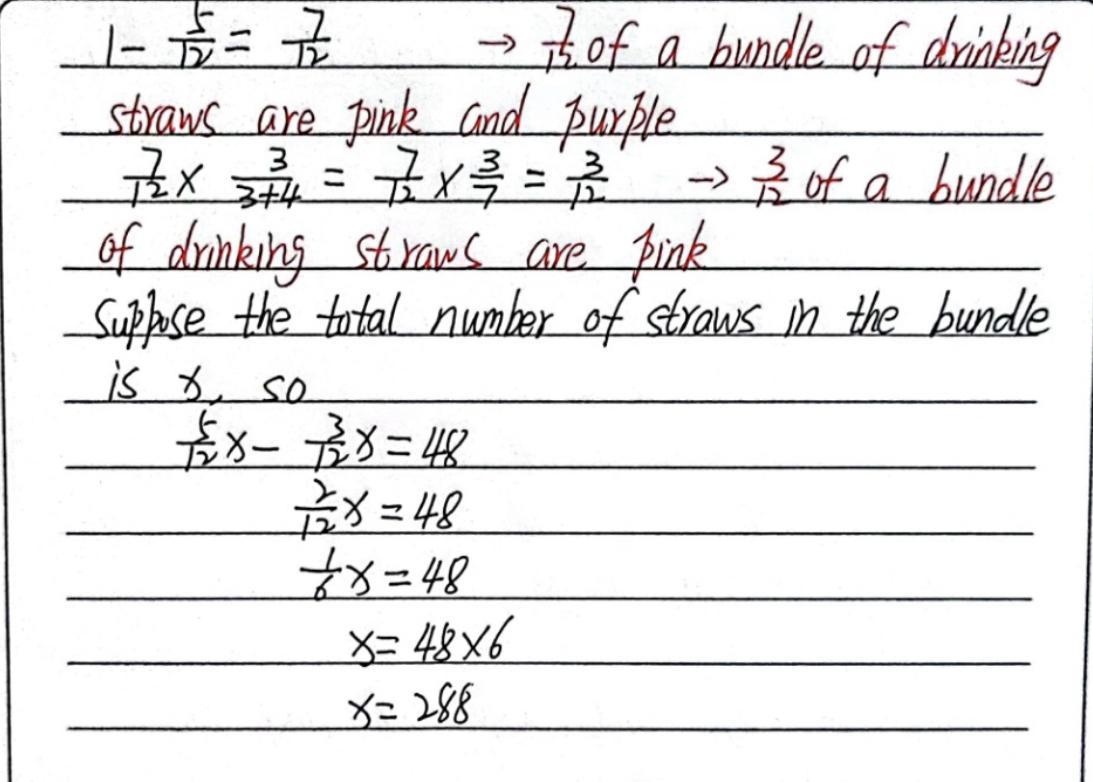 1 - 5/12 = 7/12 → 7/12 of a bundle of drinking
straws are pink and purple
7/12 × 3/(3+4) = 7/12 × 3/7 = 3/12 → 3/12 of a bundle
of drinking straws are pink
Suppose the total number of straws in the bundle
is x, so
5/12 x - 3/12 x = 48
2/12 x = 48
1/6 x = 48
x = 48 × 6
x = 288